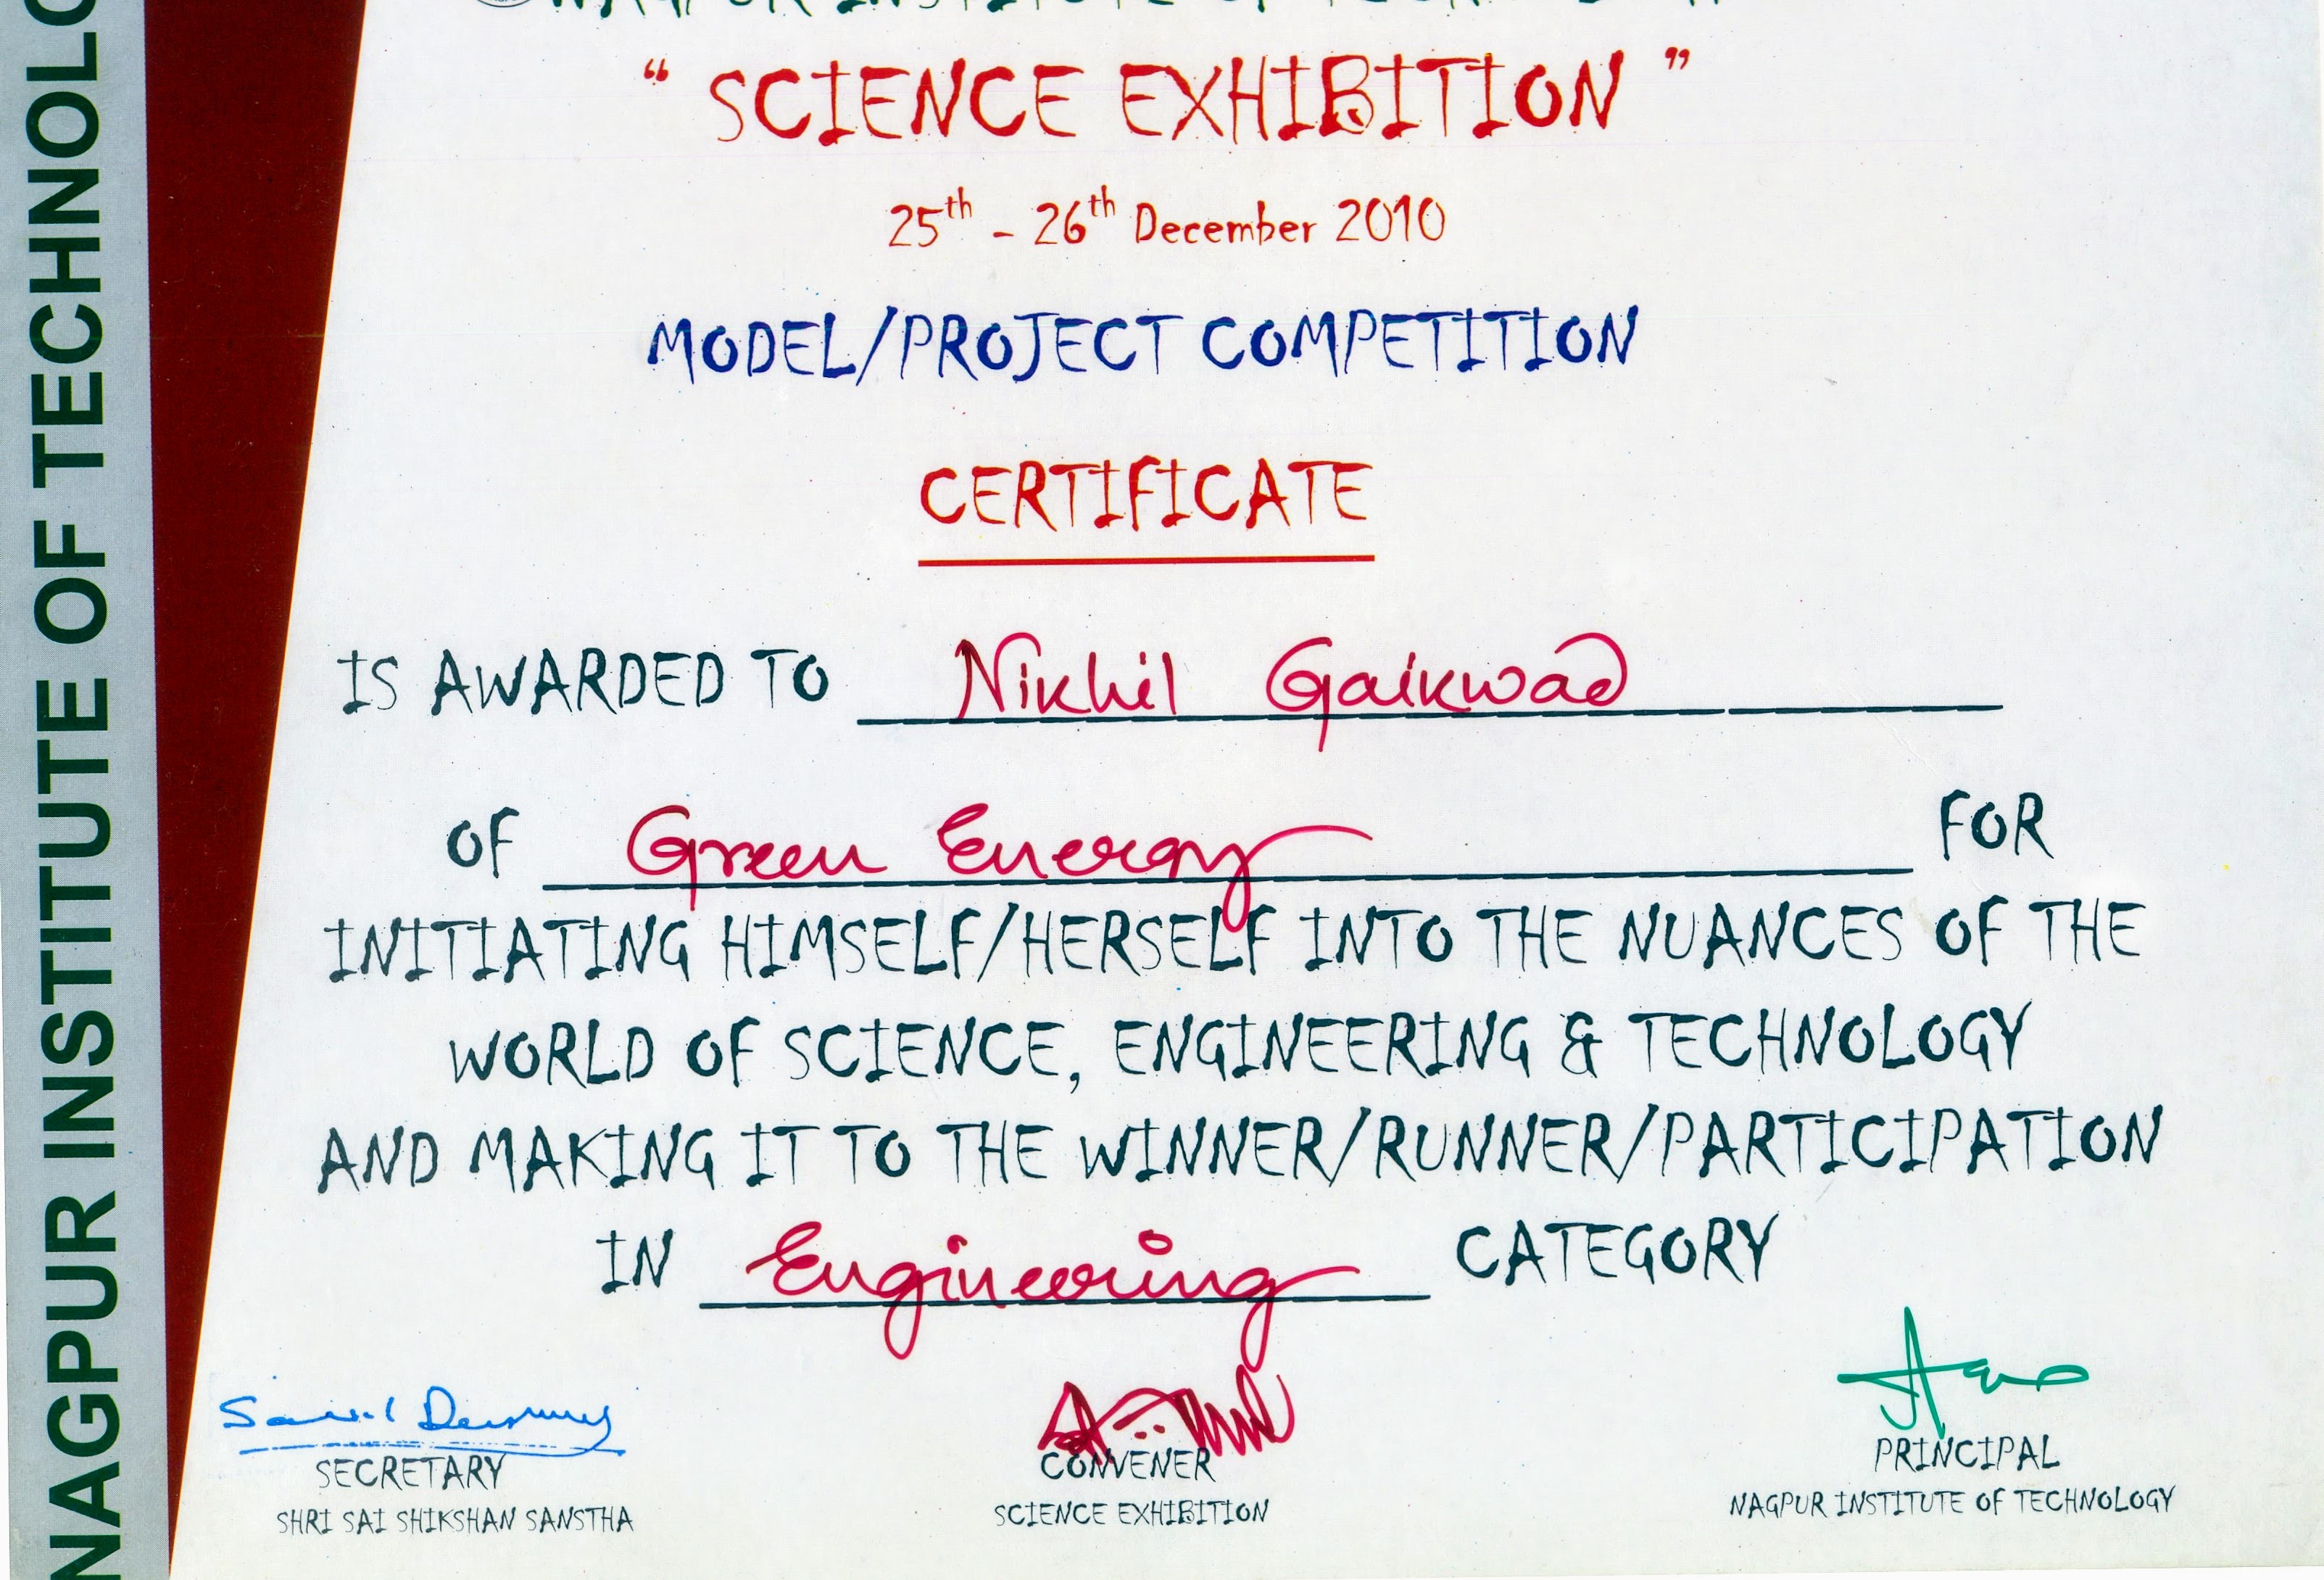 NAGPUR INSTITUTE OF TECHNOLO
NAGPUR INSTITUTE OF
“ SCIENCE EXHIBITION ”
25th - 26th December 2010
MODEL/PROJECT COMPETITION
CERTIFICATE
IS AWARDED TO Nikhil Gaikwad
OF Green Energy FOR
INITIATING HIMSELF/HERSELF INTO THE NUANCES OF THE
WORLD OF SCIENCE, ENGINEERING & TECHNOLOGY
AND MAKING IT TO THE WINNER/RUNNER/PARTICIPATION
IN Engineering CATEGORY
SECRETARY
SHRI SAI SHIKSHAN SANSTHA
CONVENER
SCIENCE EXHIBITION
PRINCIPAL
NAGPUR INSTITUTE OF TECHNOLOGY